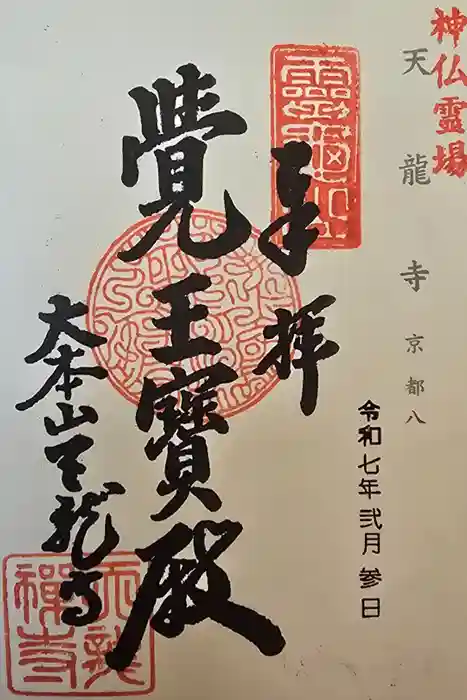 神仏霊場
天龍寺 京都八
令和七年 弐月 参日
奉拝
覺王寶殿
大本山天龍寺
靈龜山
天龍禅寺